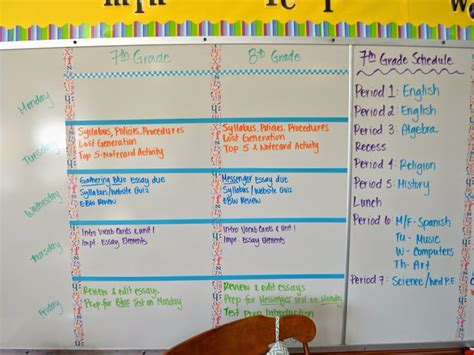 7th Grade
8th Grade
7th Grade Schedule
Monday
Tuesday
Syllabus, Policies, Procedures
Lost Generation
Top 5 Notecard Activity
Syllabus, Policies, Procedures
Lost Generation
Top 5 Notecard Activity
Wednesday
Gathering Blue Essay due
Syllabus/Website Quiz
EBW Review
Messenger Essay due
Syllabus/Website Quiz
EBW Review
Thursday
Intro Vocab Cards & Unit 1
Impt. Essay Elements
Intro Vocab Cards & Unit 1
Impt. Essay Elements
Friday
Review & edit essays
Prep for Blue Test on Monday
Review & edit essays
Prep for Messenger Test on Monday
Test Introduction
Period 1: English
Period 2: English
Period 3: Algebra
Recess
Period 4: Religion
Period 5: History
Lunch
Period 6: M/F-Spanish
Tu- Music
W- Computers
Th- Art
Period 7: Science/Wed P.E.